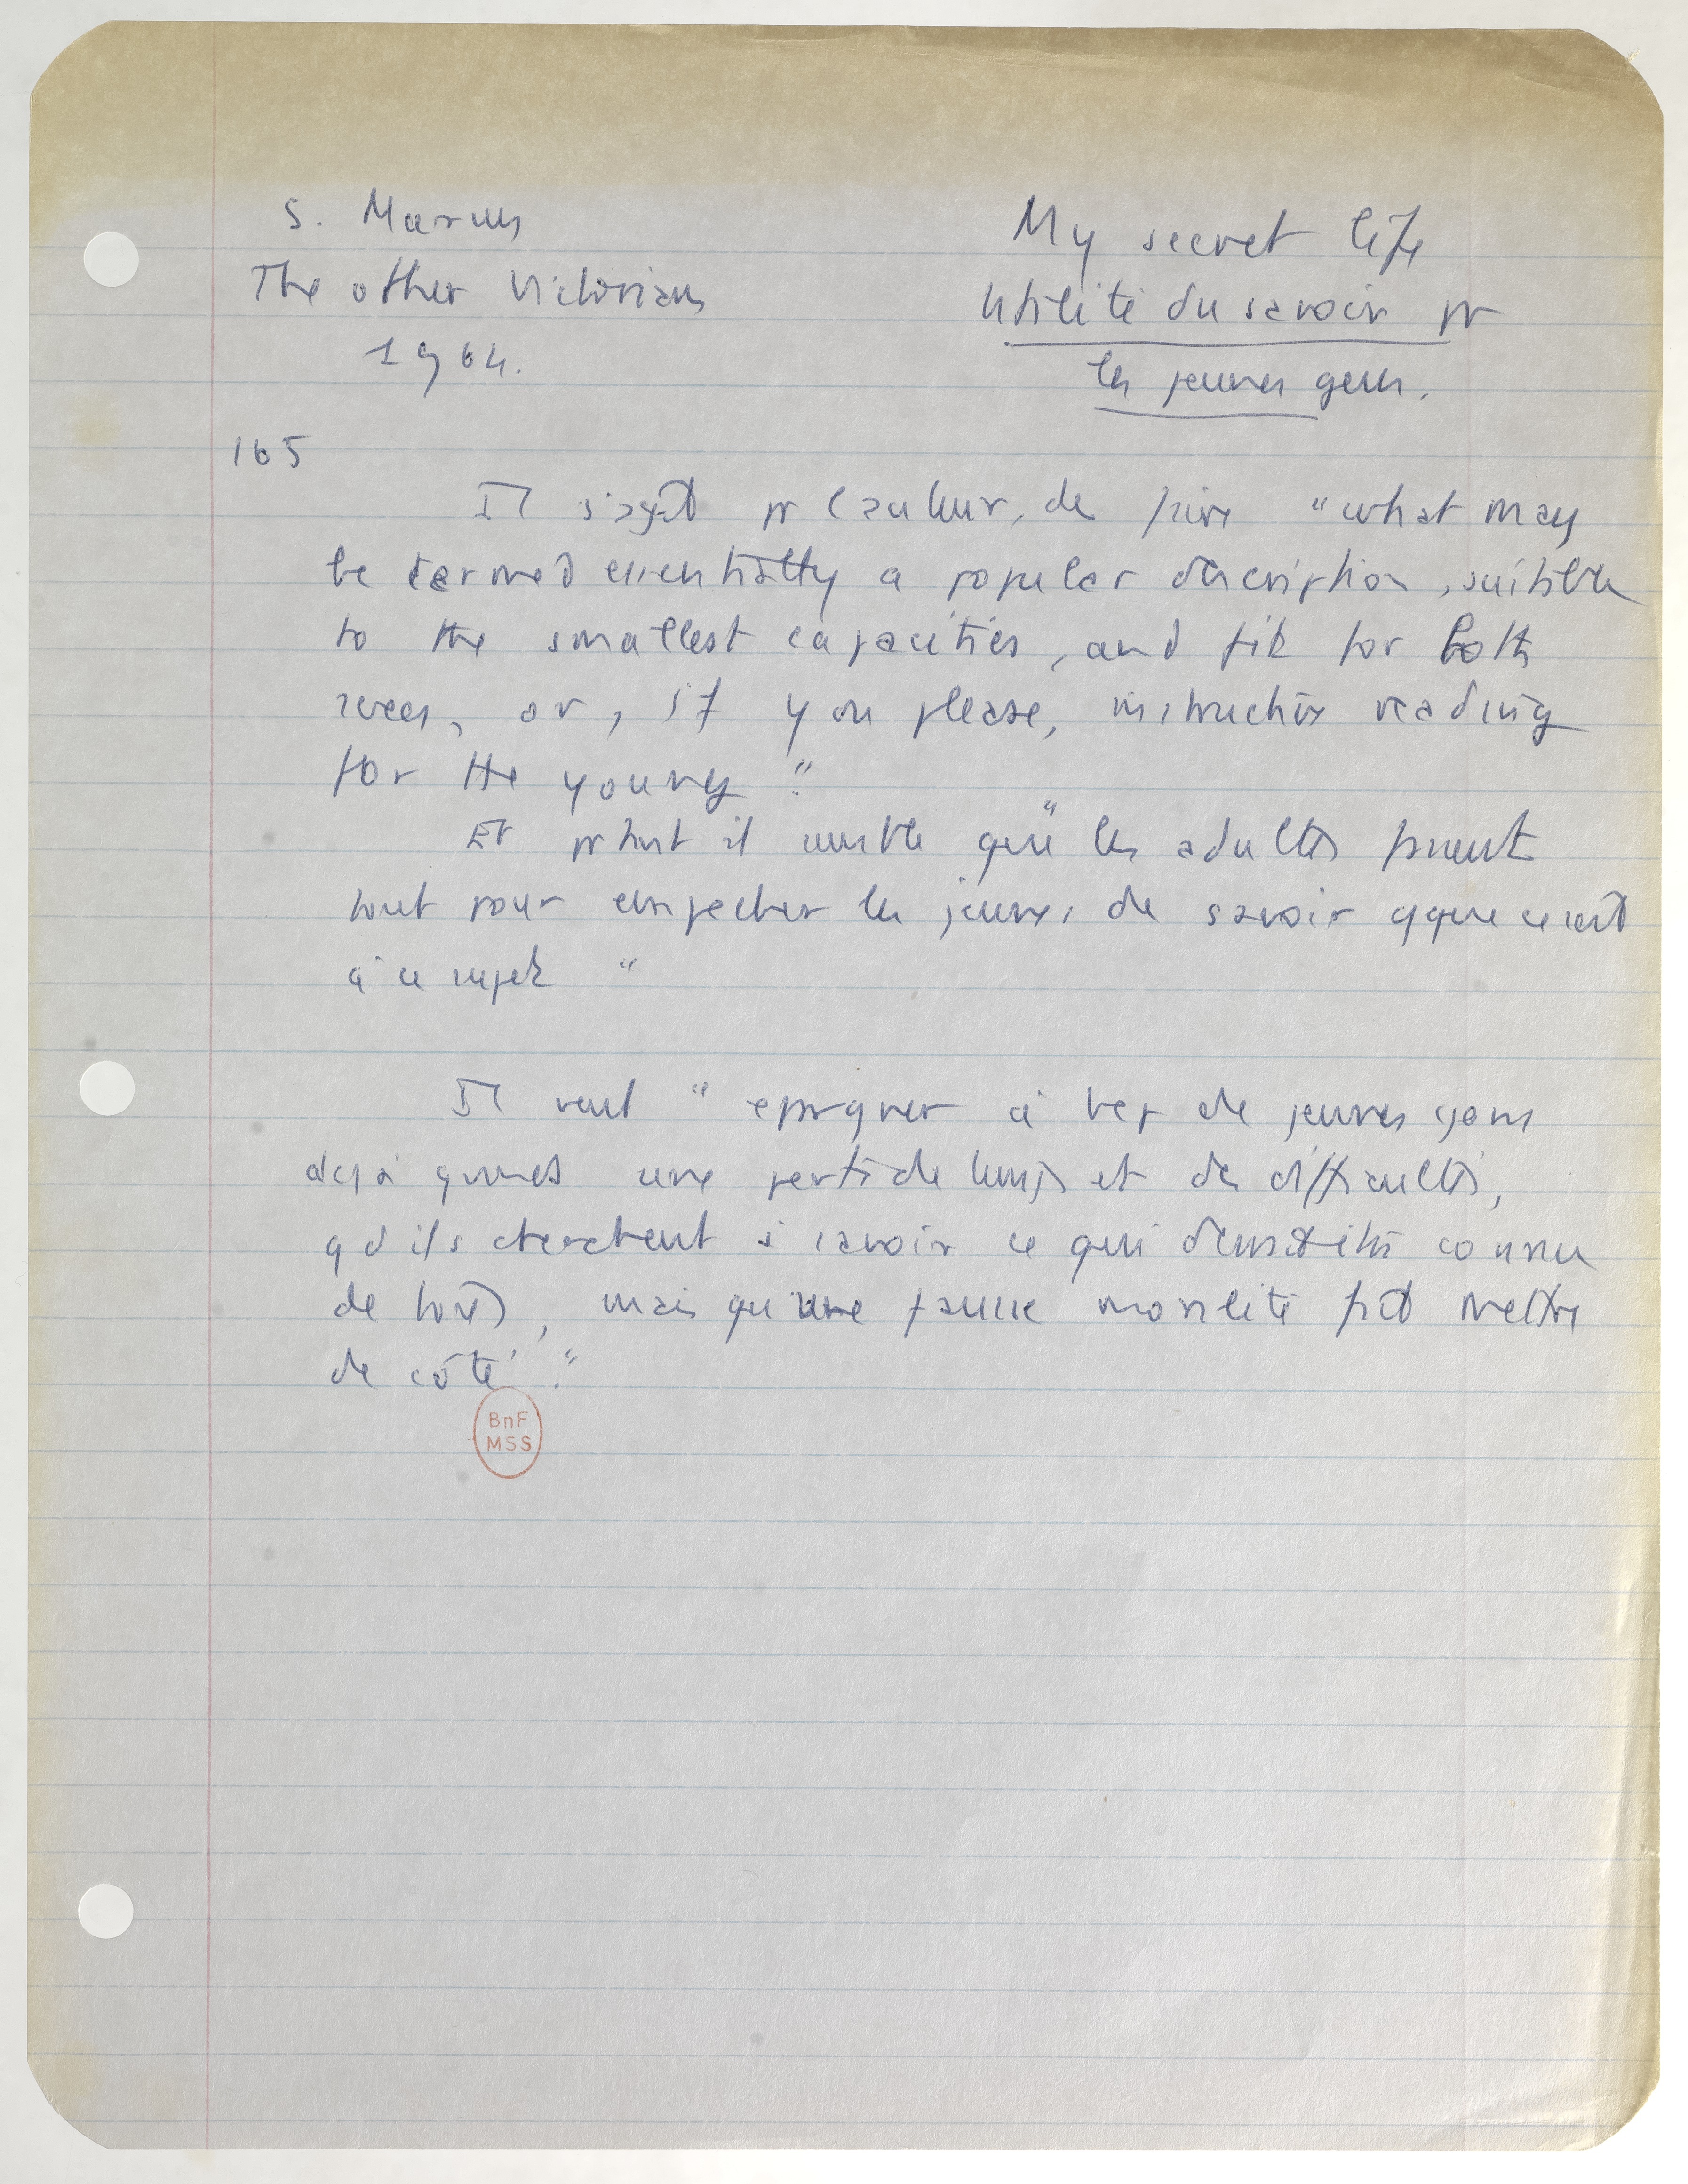 S. Marcus
The other Victorians
1964.
My secret life
Utilité du savoir pr
les jeunes gens.
165
Il s'agit pr l'auteur, de faire "what may
be termed essentially a popular description, suitable
to the smallest capacities, and fit for both
sexes, or, if you please, instructive reading
for the young."
Et prtant il semble que "les adultes fassent
tout pour empecher les jeunes de savoir qque ce soit
à ce sujet "
Il veut " epargner à bcp de jeunes gens
déjà une perte de temps et des difficultés,
qd ils cherchent à savoir ce qui connu
de tous, mais qu'une fausse moralité fait mettre
de côté."
BnF
MSS